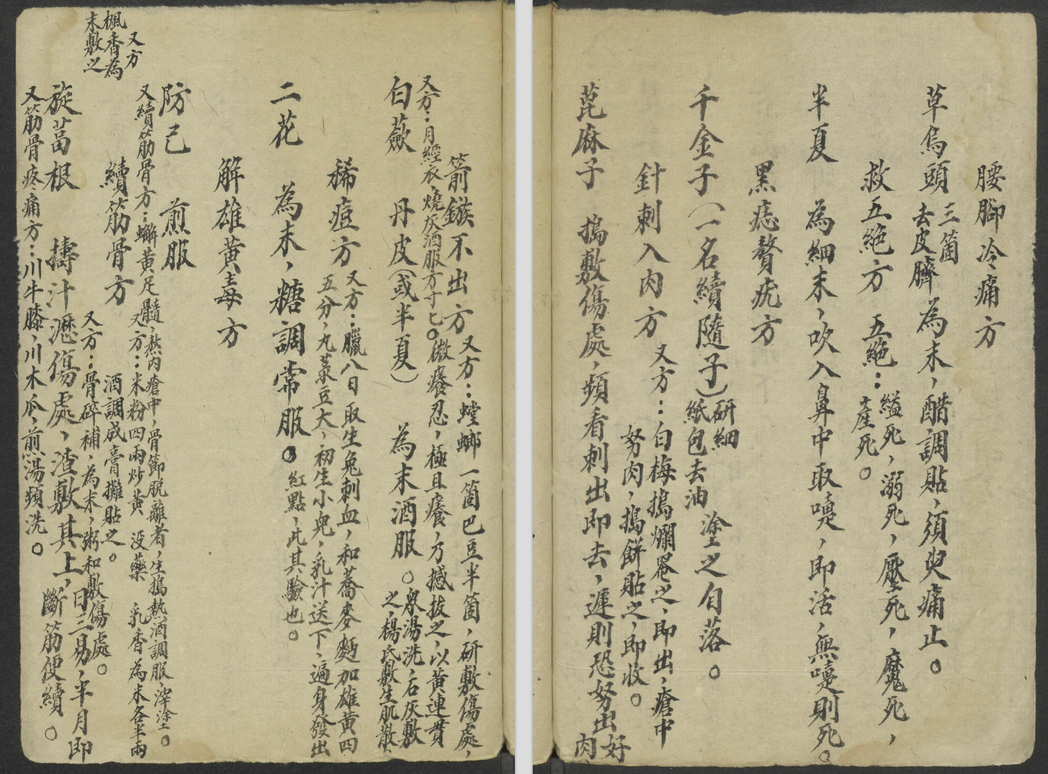 腰脚冷痛方
草烏頭 三箇去皮臍 為末，醋調貼，須臾痛止。
救五絕方 五絕：縊死，溺死，壓死，魔死，產死。
半夏 為細末，吹入鼻中取嚏，即活，無嚏則死。
黑痣贅疣方
千金子（一名續隨子）研細紙包去油 塗之自落。
針刺入肉方 又方：白梅搗爛罨之，即出，瘡中努肉，搗餅貼之，即收。
萞麻子 搗敷傷處，頻看刺出即去，遲則恐努出好肉
箭鏃不出方 又方：螳螂一箇巴豆半箇，研敷傷處，微癢忍，極且癢，乃撼拔之，以黃連貫衆湯洗，石灰敷之楊氏敷生肌散
又方：月經衣，燒灰酒服方寸匕。
白蘞 丹皮（或半夏） 為末酒服。
稀痘方 又方：臘八日取生兔刺血，和蕎麥麵加雄黃四五分，丸菉豆大，初生小兒，乳汁送下，遍身發出紅點，此其驗也。
二花 為末，糖調常服。
解雄黃毒方
防己 煎服
又續筋骨方：蠏黃足髓，熬內瘡中，骨節脫離者，生搗熱酒調服，滓塗。
續筋骨方 又方：米粉四兩炒黃 沒藥 乳香為末各半兩酒調成膏攤貼之。
又方：骨碎補，為末，粥和敷傷處。
又方
楓香為末敷之
旋葍根 擣汁瀝傷處，渣敷其上，日三易，半月即斷筋便續。
又筋骨疼痛方：川牛膝，川木瓜，煎湯頻洗。